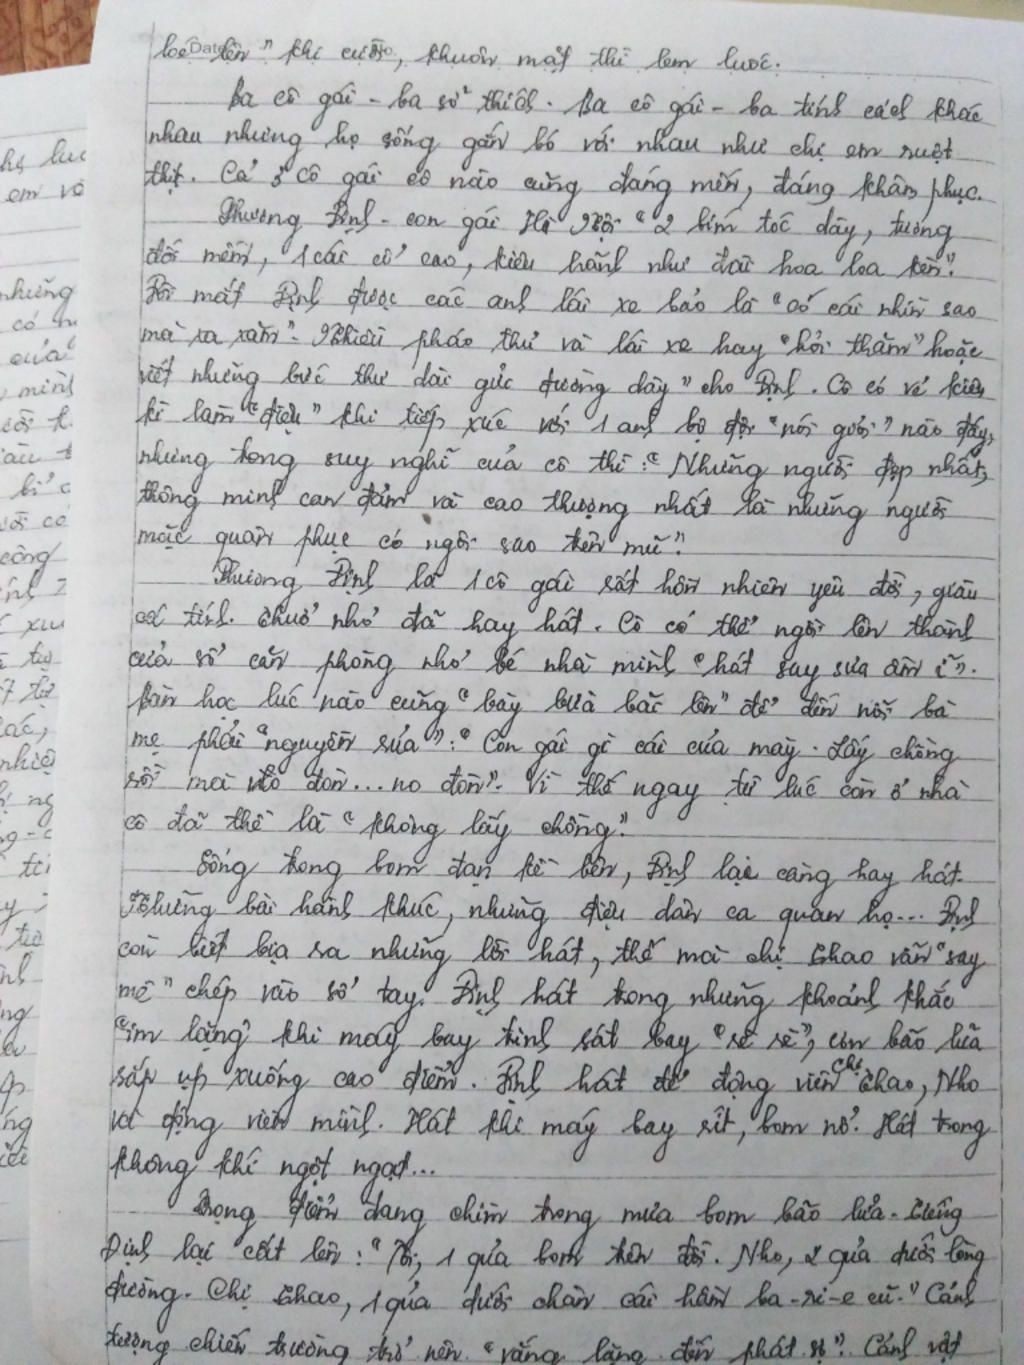 loé lên" khi cười, khuôn mặt thì lem luốc.
Ba cô gái - ba sở thích. Ba cô gái - ba tính cách khác
nhau nhưng họ sống gắn bó với nhau như chị em ruột
thịt. Cả 3 cô gái cô nào cũng đáng mến, đáng khâm phục.
Phương Định - con gái Hà Nội "2 bím tóc dày, tương
đối mềm, 1 cái cổ cao, kiêu hãnh như đài hoa loa kèn".
Đôi mắt Định được các anh lái xe bảo là "có cái nhìn sao
mà xa xăm". Nhiều pháo thủ và lái xe hay "hỏi thăm" hoặc
viết những bức thư dài gửi đường dây" cho Định. Cô có vẻ kiêu
kì làm "điệu" khi tiếp xúc với 1 anh bộ đội "nói giỏi" nào đấy,
nhưng trong suy nghĩ của cô thì: "Những người đẹp nhất,
thông minh can đảm và cao thượng nhất là những người
mặc quân phục có ngôi sao trên mũ".
Phương Định là 1 cô gái rất hồn nhiên yêu đời, giàu
cá tính. Thuở nhỏ đã hay hát. Cô có thể ngồi lên thành
cửa sổ căn phòng nhỏ bé nhà mình "hát say sưa ầm ĩ".
Bàn học lúc nào cũng "bày bừa bãi lên" để đến nỗi bà
mẹ phải "nguyền rủa": "Con gái gì cái của mày. Lấy chồng
rồi mà no đòn... no đòn". Vì thế ngay từ lúc còn ở nhà
cô đã thề là "không lấy chồng".
Sống trong bom đạn kề bên, Định lại càng hay hát.
Những bài hành khúc, những điệu dân ca quan họ... Định
còn biết bịa ra những lời hát, thế mà chị Thao vẫn "say
mê" chép vào sổ tay. Định hát trong những khoảnh khắc
"im lặng" khi máy bay trinh sát bay "rè rè", cơn bão lửa
sắp up xuống cao điểm. Định hát để động viên chị Thao, Nho
và động viên mình. Hát khi máy bay rít, bom nổ. Hát trong
không khí ngột ngạt...
Trọng điểm đang chìm trong mưa bom bão lửa. Tiếng
Định lại cất lên: "Tôi, 1 quả bom trên đồi. Nho, 2 quả dưới lòng
đường. Chị Thao, 1 quả dưới chân cái hầm ba-ri-e cũ." Cảnh
tượng chiến trường trở nên "vắng lặng đến phát sợ". Cảnh vật